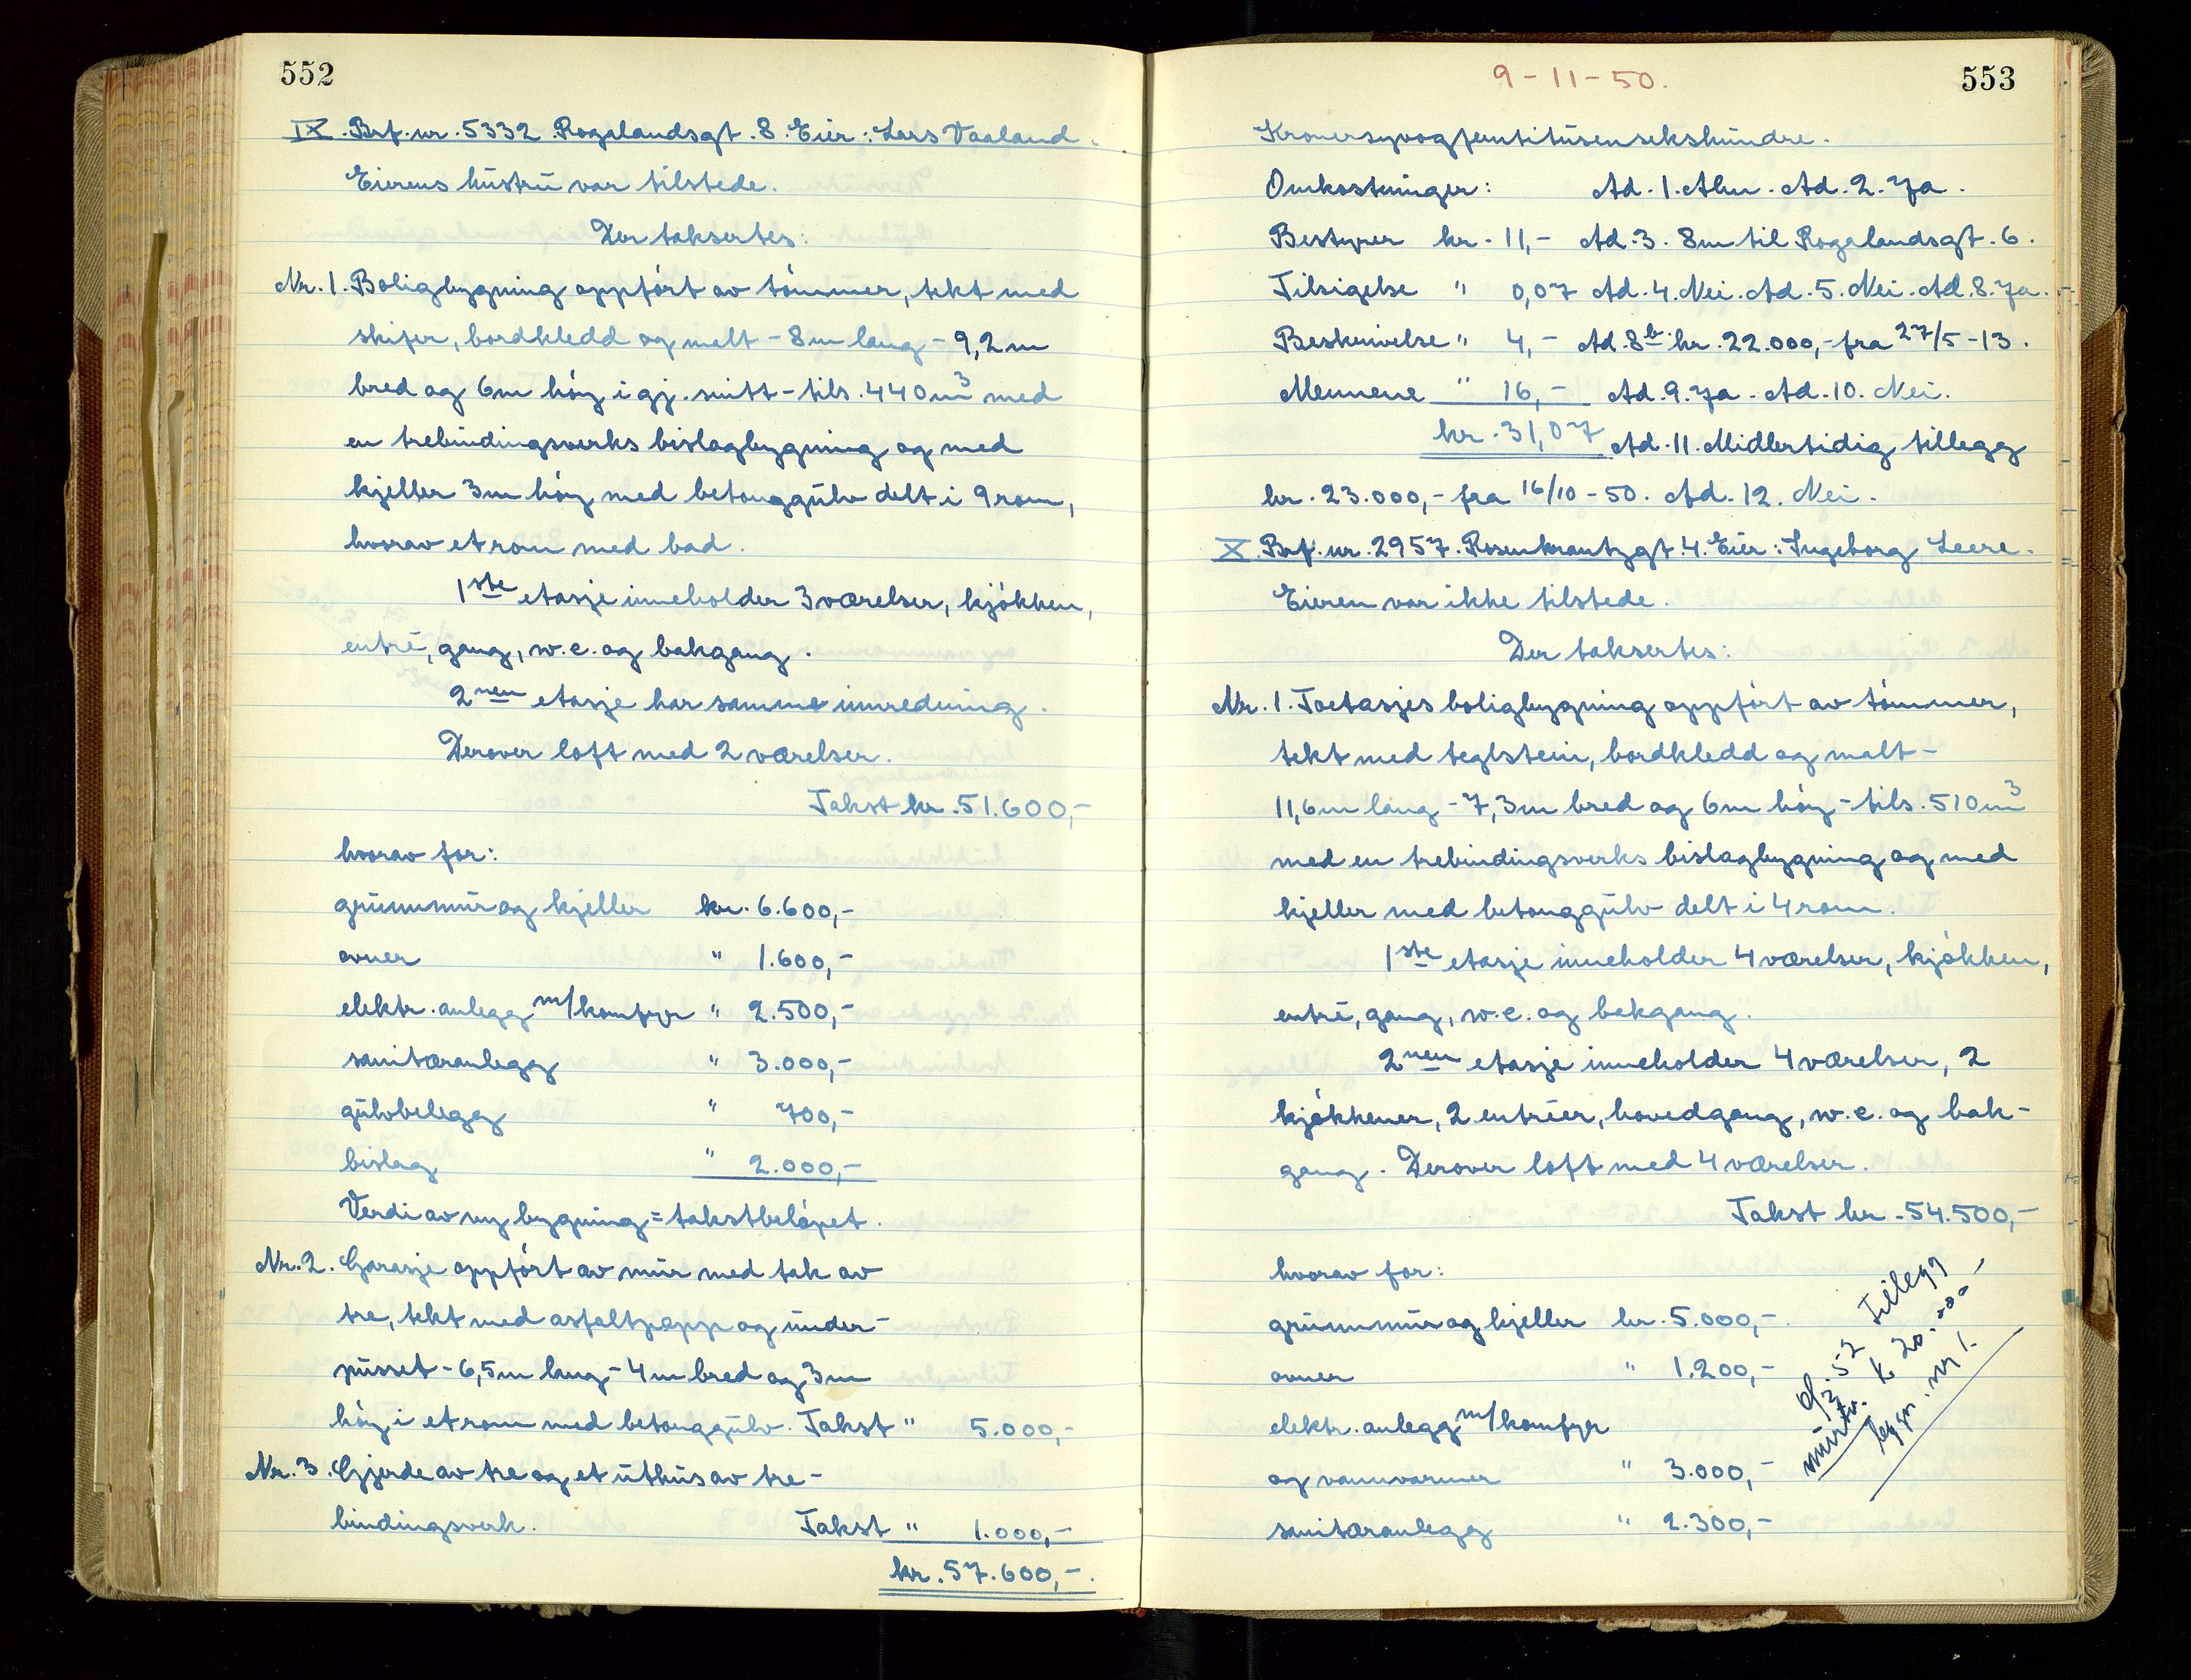 552
IX. Brf. nr. 5332 Rogalandsgt. 8. Eier: Lars Vaaland.
Eierens hustru var tilstede.
Der taksertes:
Nr. 1. Boligbygning oppført av tømmer, tekt med
skifer, bordkledd og malt - 8m lang - 9,2 m
bred og 6m høy i gj. snitt - tils. 440 m³ med
en trebindingsverks bislagbygning og med
kjeller 3m høy med betonggulv delt i 9 rom,
hvorav et rom med bad.
1ste etasje inneholder 3 værelser, kjøkken,
entré, gang, w.c. og bakgang.
2nen etasje har samme innredning.
Derover loft med 2 værelser.
Takst kr. 51.600,-
hvorav for:
grunnmur og kjeller kr. 6.600,-
ovner " 1.600,-
elektr. anlegg m/komfyr " 2.500,-
sanitæranlegg " 3.000,-
gulvbelegg " 700,-
bislag " 2.000,-
Verdi av ny bygning = takstbeløpet.
Nr. 2. Garasje oppført av mur med tak av
tre, tekt med asfaltpapp og under-
pusset - 6,5m lang - 4m bred og 3m
høy i et rom med betonggulv. Takst " 5.000,-
Nr. 3. Gjerde av tre og et uthus av tre-
bindingsverk. Takst " 1.000,-
kr. 57.600,-.
9-11-50.
553
Kronersyvogfemtitusensekshundre.
Omkostninger: Ad. 1. Alm. Ad. 2. Ja.
Bestyrer kr. 11,- Ad. 3. 8m til Rogalandsgt. 6.
Tilsigelse " 0,07 Ad. 4. Nei. Ad. 5. Nei. Ad. 8. Ja.
Beskrivelse " 4,- Ad. 8b kr. 22.000,- fra 27/5-13.
Mennene " 16,- Ad. 9. Ja. Ad. 10. Nei.
kr. 31,07 Ad. 11. Midlertidig tillegg
kr. 23.000,- fra 16/10-50. Ad. 12. Nei.
X. Brf. nr. 2957. Rosenkrantzgt. 4. Eier: Ingeborg Leere.
Eieren var ikke tilstede.
Der taksertes:
Nr. 1. Toetasjes boligbygning oppført av tømmer,
tekt med teglstein, bordkledd og malt -
11,6m lang - 7,3m bred og 6m høy - tils. 510 m³
med en trebindingsverks bislagbygning og med
kjeller med betonggulv delt i 4 rom.
1ste etasje inneholder 4 værelser, kjøkken,
entré, gang, w.c. og bakgang.
2nen etasje inneholder 4 værelser, 2
kjøkkener, 2 entréer, hovedgang, w.c. og bak-
gang. Derover loft med 4 værelser.
Takst kr. 54.500,-
hvorav for:
grunnmur og kjeller kr. 5.000,-
ovner " 1.200,-
elektr. anlegg m/komfyr
og vannvarmer " 3.000,-
sanitæranlegg " 2.300,-
52 Tillegg
k 20.000-
bygn. nr 1.